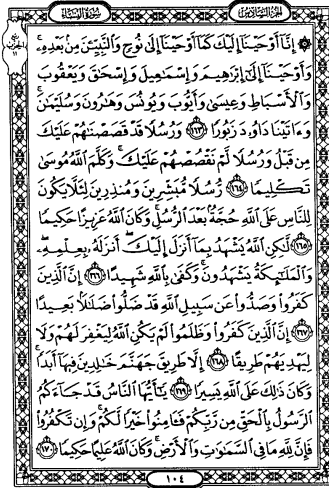 الجزء السادس سورة النساء
ربع الحزب ١١
۞ إِنَّا أَوْحَيْنَا إِلَيْكَ كَمَا أَوْحَيْنَا إِلَىٰ نُوحٍ وَالنَّبِيِّينَ مِنْ بَعْدِهِ ۚ
وَأَوْحَيْنَا إِلَىٰ إِبْرَاهِيمَ وَإِسْمَاعِيلَ وَإِسْحَاقَ وَيَعْقُوبَ
وَالْأَسْبَاطِ وَعِيسَىٰ وَأَيُّوبَ وَيُونُسَ وَهَارُونَ وَسُلَيْمَانَ ۚ
وَءَاتَيْنَا دَاوُۥدَ زَبُورًا ﴿١٦٣﴾ وَرُسُلًا قَدْ قَصَصْنَاهُمْ عَلَيْكَ
مِن قَبْلُ وَرُسُلًا لَّمْ نَقْصُصْهُمْ عَلَيْكَ ۚ وَكَلَّمَ اللَّهُ مُوسَىٰ
تَكْلِيمًا ﴿١٦٤﴾ رُّسُلًا مُّبَشِّرِينَ وَمُنذِرِينَ لِئَلَّا يَكُونَ
لِلنَّاسِ عَلَى اللَّهِ حُجَّةٌ بَعْدَ الرُّسُلِ ۚ وَكَانَ اللَّهُ عَزِيزًا حَكِيمًا
﴿١٦٥﴾ لَّٰكِنِ اللَّهُ يَشْهَدُ بِمَا أَنزَلَ إِلَيْكَ ۖ أَنزَلَهُ بِعِلْمِهِ ۖ
وَالْمَلَائِكَةُ يَشْهَدُونَ ۚ وَكَفَىٰ بِاللَّهِ شَهِيدًا ﴿١٦٦﴾ إِنَّ الَّذِينَ
كَفَرُوا وَصَدُّوا عَن سَبِيلِ اللَّهِ قَدْ ضَلُّوا ضَلَالًا بَعِيدًا
﴿١٦٧﴾ إِنَّ الَّذِينَ كَفَرُوا وَظَلَمُوا لَمْ يَكُنِ اللَّهُ لِيَغْفِرَ لَهُمْ وَلَا
لِيَهْدِيَهُمْ طَرِيقًا ﴿١٦٨﴾ إِلَّا طَرِيقَ جَهَنَّمَ خَالِدِينَ فِيهَا أَبَدًا ۚ
وَكَانَ ذَٰلِكَ عَلَى اللَّهِ يَسِيرًا ﴿١٦٩﴾ يَا أَيُّهَا النَّاسُ قَدْ جَاءَكُمُ
الرَّسُولُ بِالْحَقِّ مِن رَّبِّكُمْ فَآمِنُوا خَيْرًا لَّكُمْ ۚ وَإِن تَكْفُرُوا
فَإِنَّ لِلَّهِ مَا فِي السَّمَاوَاتِ وَالْأَرْضِ ۚ وَكَانَ اللَّهُ عَلِيمًا حَكِيمًا ﴿١٧٠﴾
١٠٤